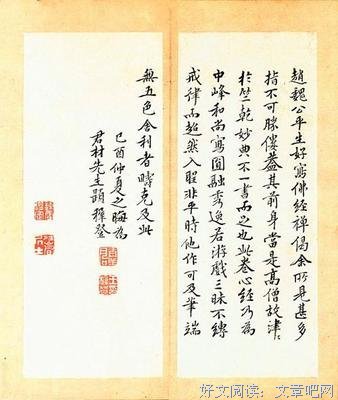 趙魏公平生好寫佛經禪偈余所見甚多
指不可勝僂蓋其前身當是高僧故津津
於竺乾妙典不一書而足也此卷心經乃為
中峰和尚寫圓融秀逸若游戲三昧不縛
戒律而超然入聖非平時他作可及筆端
無五色舍利者疇克及此
己酉仲夏之晦為
君材先生題穉登
好文阅读：文章吧网